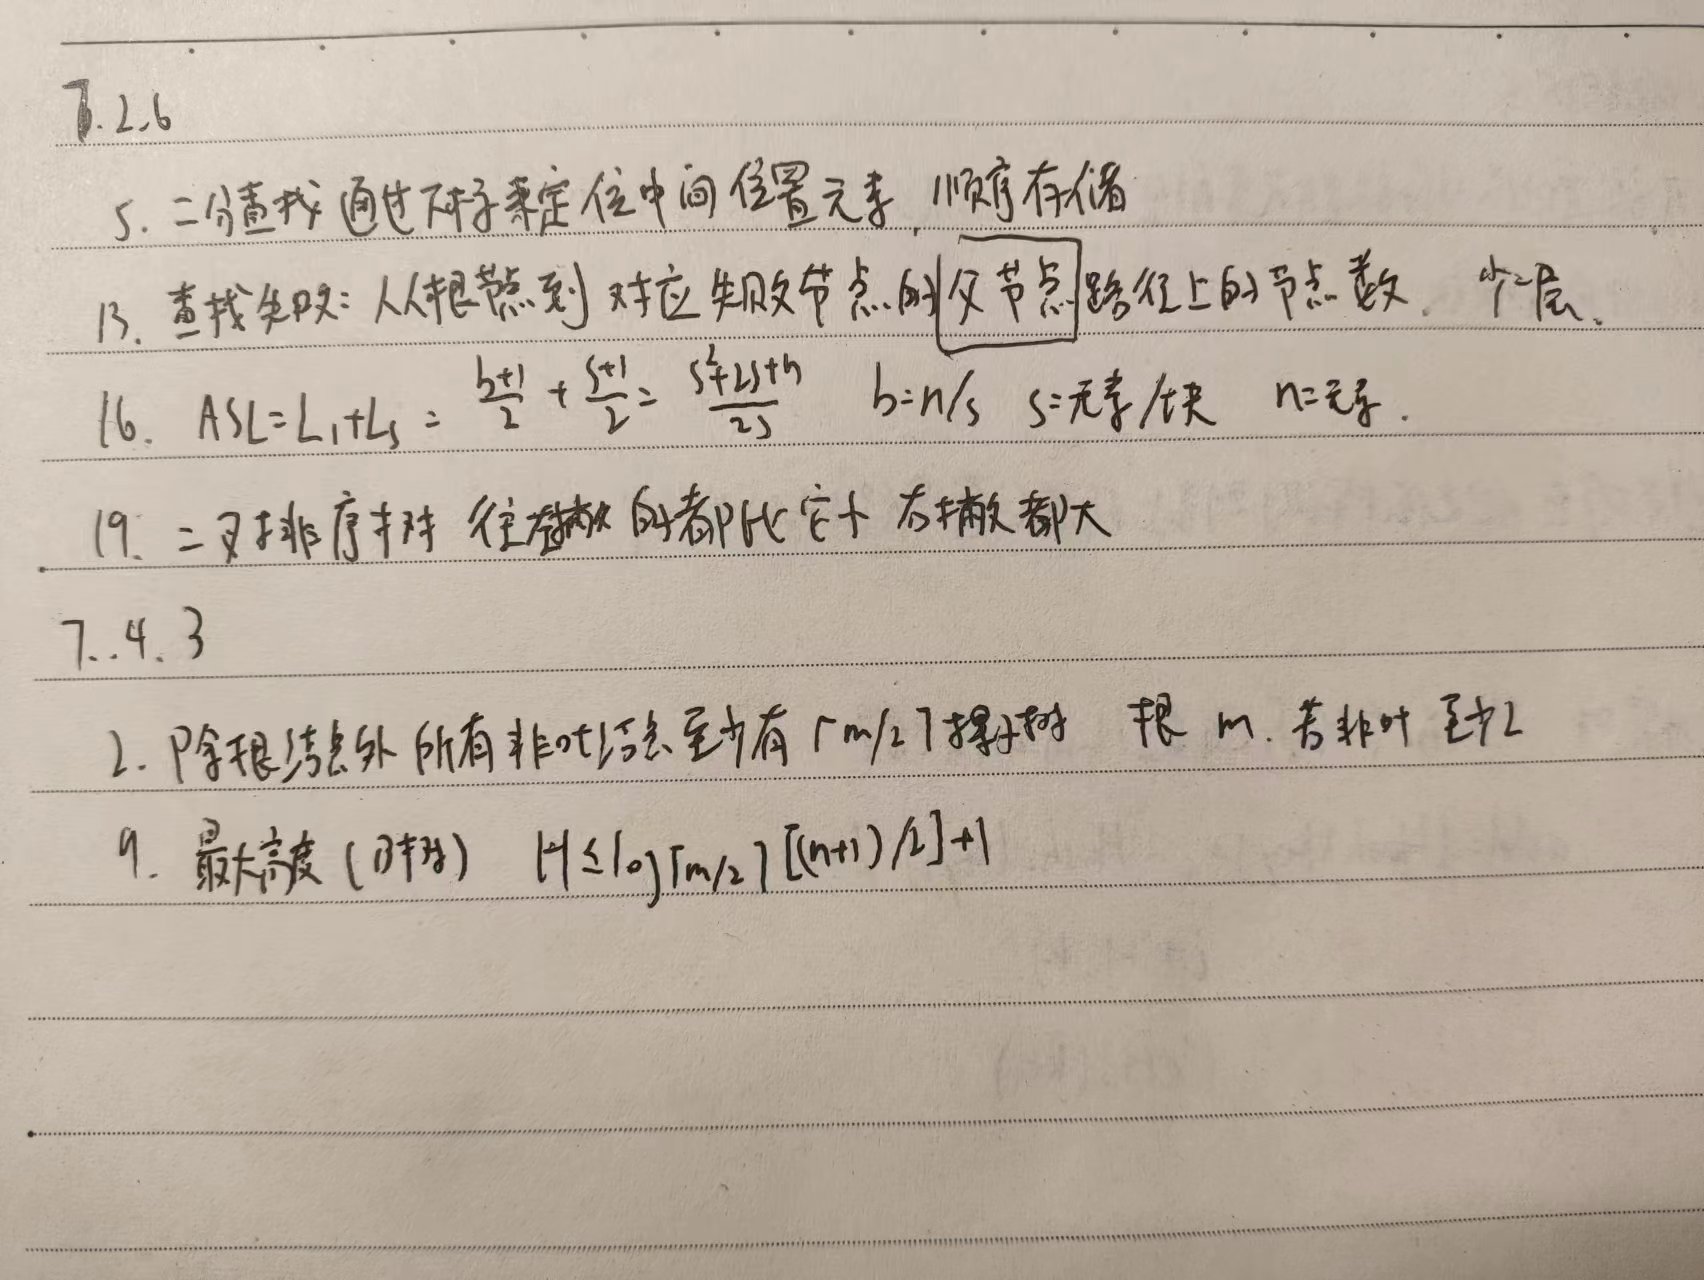 7.2.6
5. 二分查找 通过下标来定位中间位置元素, 顺序存储
13. 查找失败: 从根节点到对应失败节点的父节点路径上的节点数. 少一层.
16. ASL=L₁+Lₛ = (b+1)/2 + (s+1)/2 = (s²+2s+n)/2s b=n/s s=元素/块 n=元素.
19. 二叉排序树 往左撇的都比它小 右撇都大
7.4.3
2. 除根结点外 所有非叶结点至少有⌈m/2⌉棵子树 根 m. 若非叶 至少2
9. 最大高度 (B树) H≤log⌈m/2⌉[(n+1)/2]+1